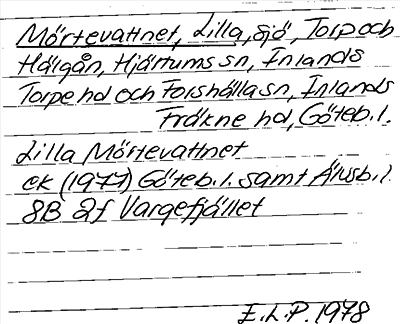 Mörtevattnet, Lilla, sjö, Torp och
Hälgån, Hjärtums sn, Inlands
Torpe hd och Forshälla sn, Inlands
Fräkne hd, Göteb. l.
Lilla Mörtevattnet
ek (1977) Göteb. l. samt Älvsb. l
8B 2f Vargefjället
E.L.P. 1978